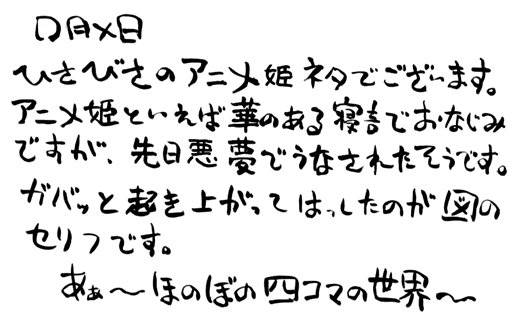 〇月×日
ひさびさのアニメ姫ネタでございます。
アニメ姫といえば華のある寝言でおなじみ
ですが、先日悪夢でうなされたそうです。
ガバッと起き上がってはっしたのが図の
セリフです。
あぁ～ほのぼの四コマの世界～